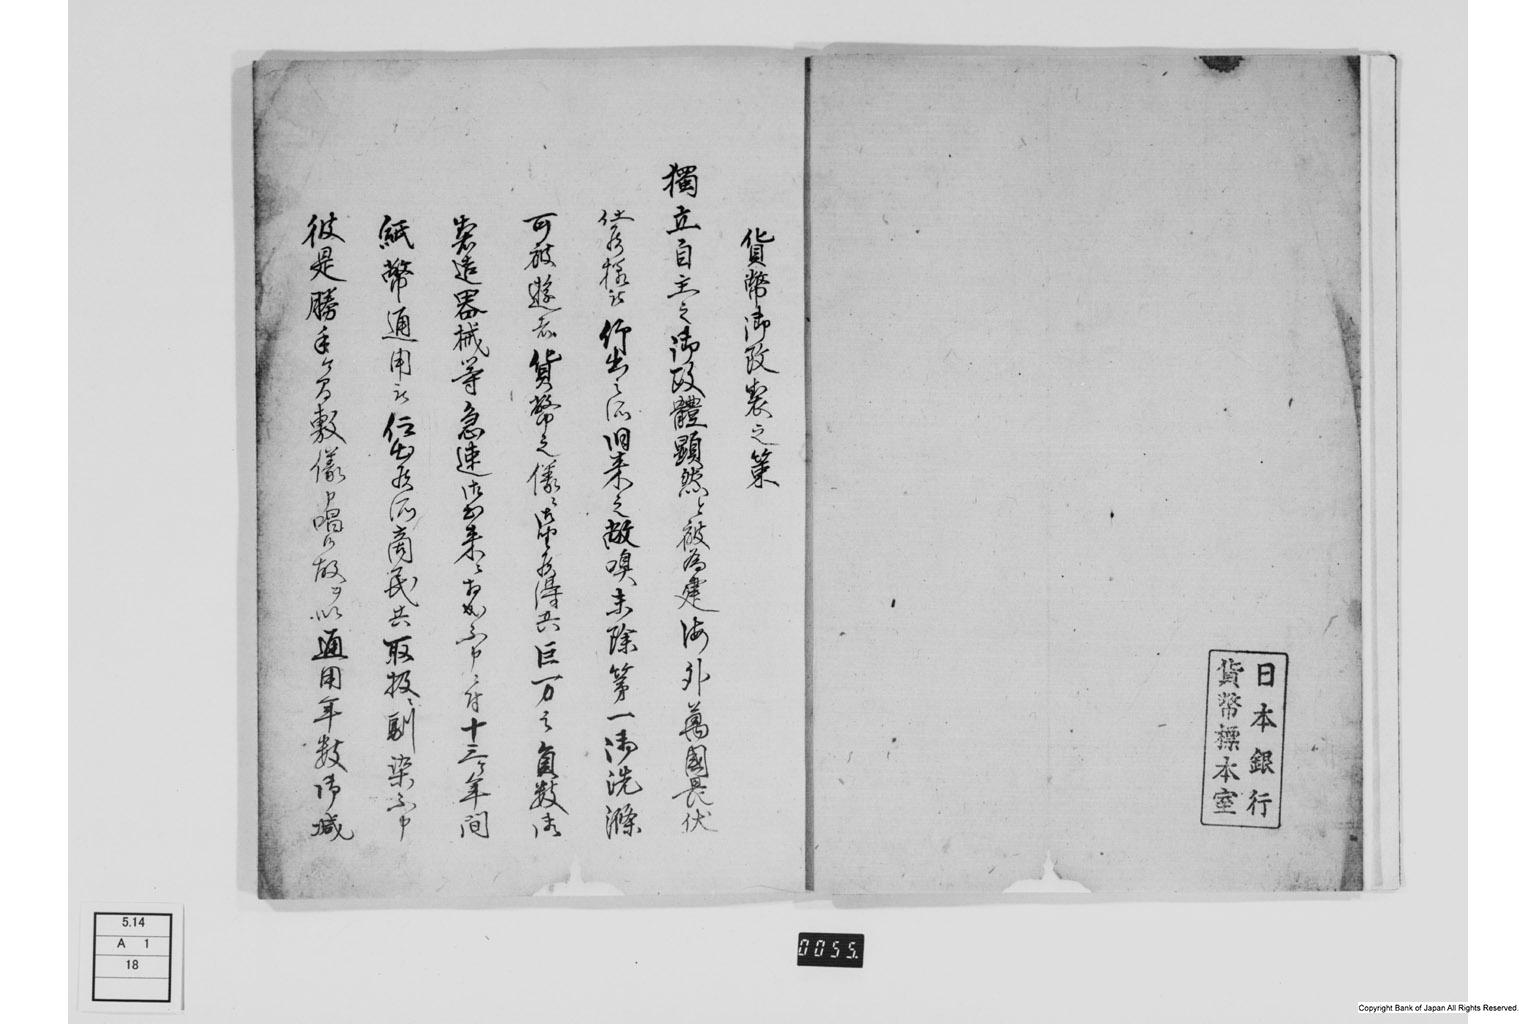 日本銀行
貨幣標本室
貨幣御改製之策
獨立自主之御政體顕然と被為建海外萬國畏伏
仕候様被 仰出之処旧来之敝嗅未除第一御洗滌
可被遊者貨幣之儀ニ御座候得共巨万之員数御
製造器械等急速出来ニ相成不申ニ付十三ヶ年間
紙幣通用被 仰出候処商民共取扱ニ馴染不申
彼是勝手ヶ間敷儀申唱候故ヲ以通用年数御減
5.14
A 1
18
0055.
Copyright Bank of Japan All Rights Reserved.